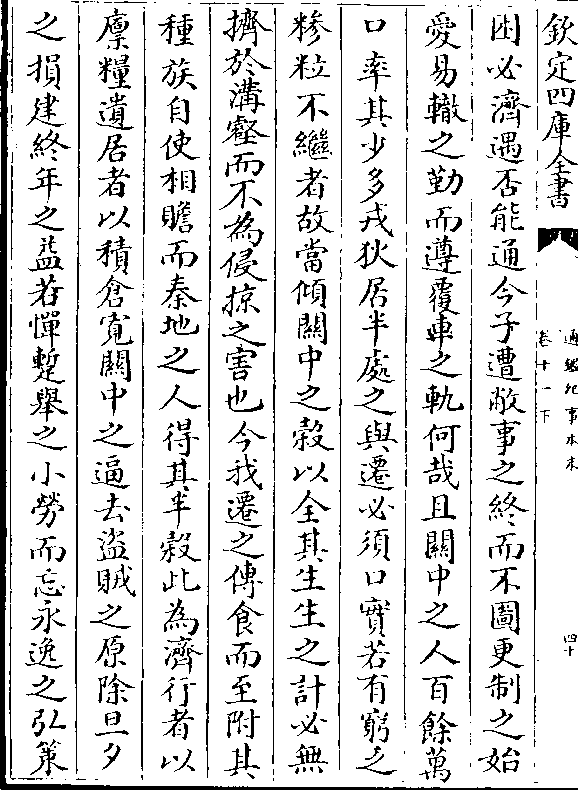 欽定四庫全書
通鑑紀事本末
卷十一下
四十
困必濟遇否能通今子遭敝事之終而不圖更制之始
愛易轍之勤而遵覆車之軌何哉且關中之人百餘萬
口率其少多戎狄居半處之與遷必須口實若有窮乏
糝粒不繼者故當傾關中之榖以全其生生之計必無
擠於溝壑而不為侵掠之害也今我遷之傳食而至附其
種族自使相贍而秦地之人得其半榖此為濟行者以
廪糧遺居者以積倉寛關中之逼去盜賊之原除旦夕
之損建終年之益若憚蹔舉之小勞而忘永逸之弘策